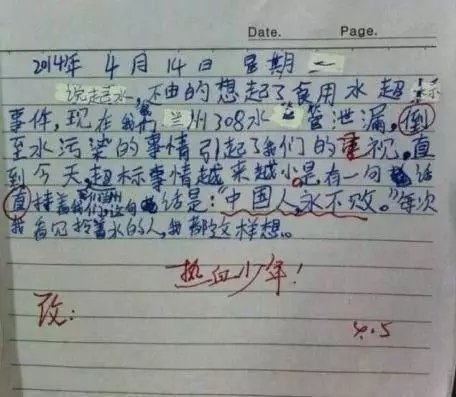 Date. Page.
2014年 4月 14日 星期一
说起水,不由的想起了食用水超标
事件,现在我们兰州308水管泄漏,倒
至水污染的事情引起了我们的重视,直
到今天,超标事情越来越小,是有一句话
直持着我们,这句话是:“中国人,永不败。”每次
我看见抢着水的人,我都这样想。
热血少年!
改:
4.5